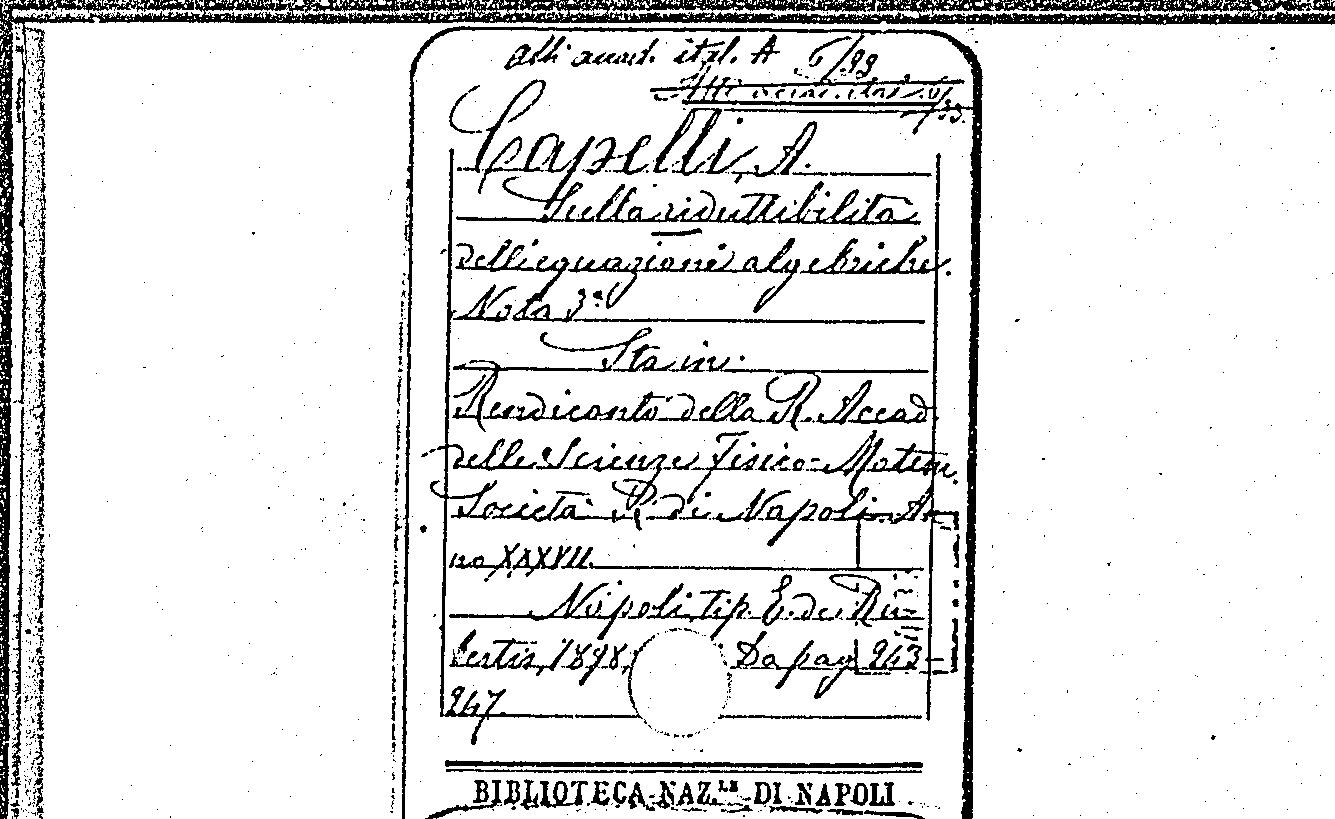 Atti accad. ital. A 6/33
Atti accad. ital. 6/33.
Capelli, A.
Sulla riduttibilità
delle equazioni algebriche.
Nota 3ª
Sta in:
Rendiconto della R. Accad.
delle Scienze Fisico-Matem.
Società R. di Napoli. An-
no XXXVII.
Napoli, tip. E. de Ru-
bertis, 1898, Da pag. 243-
247.
BIBLIOTECA NAZ.LE DI NAPOLI